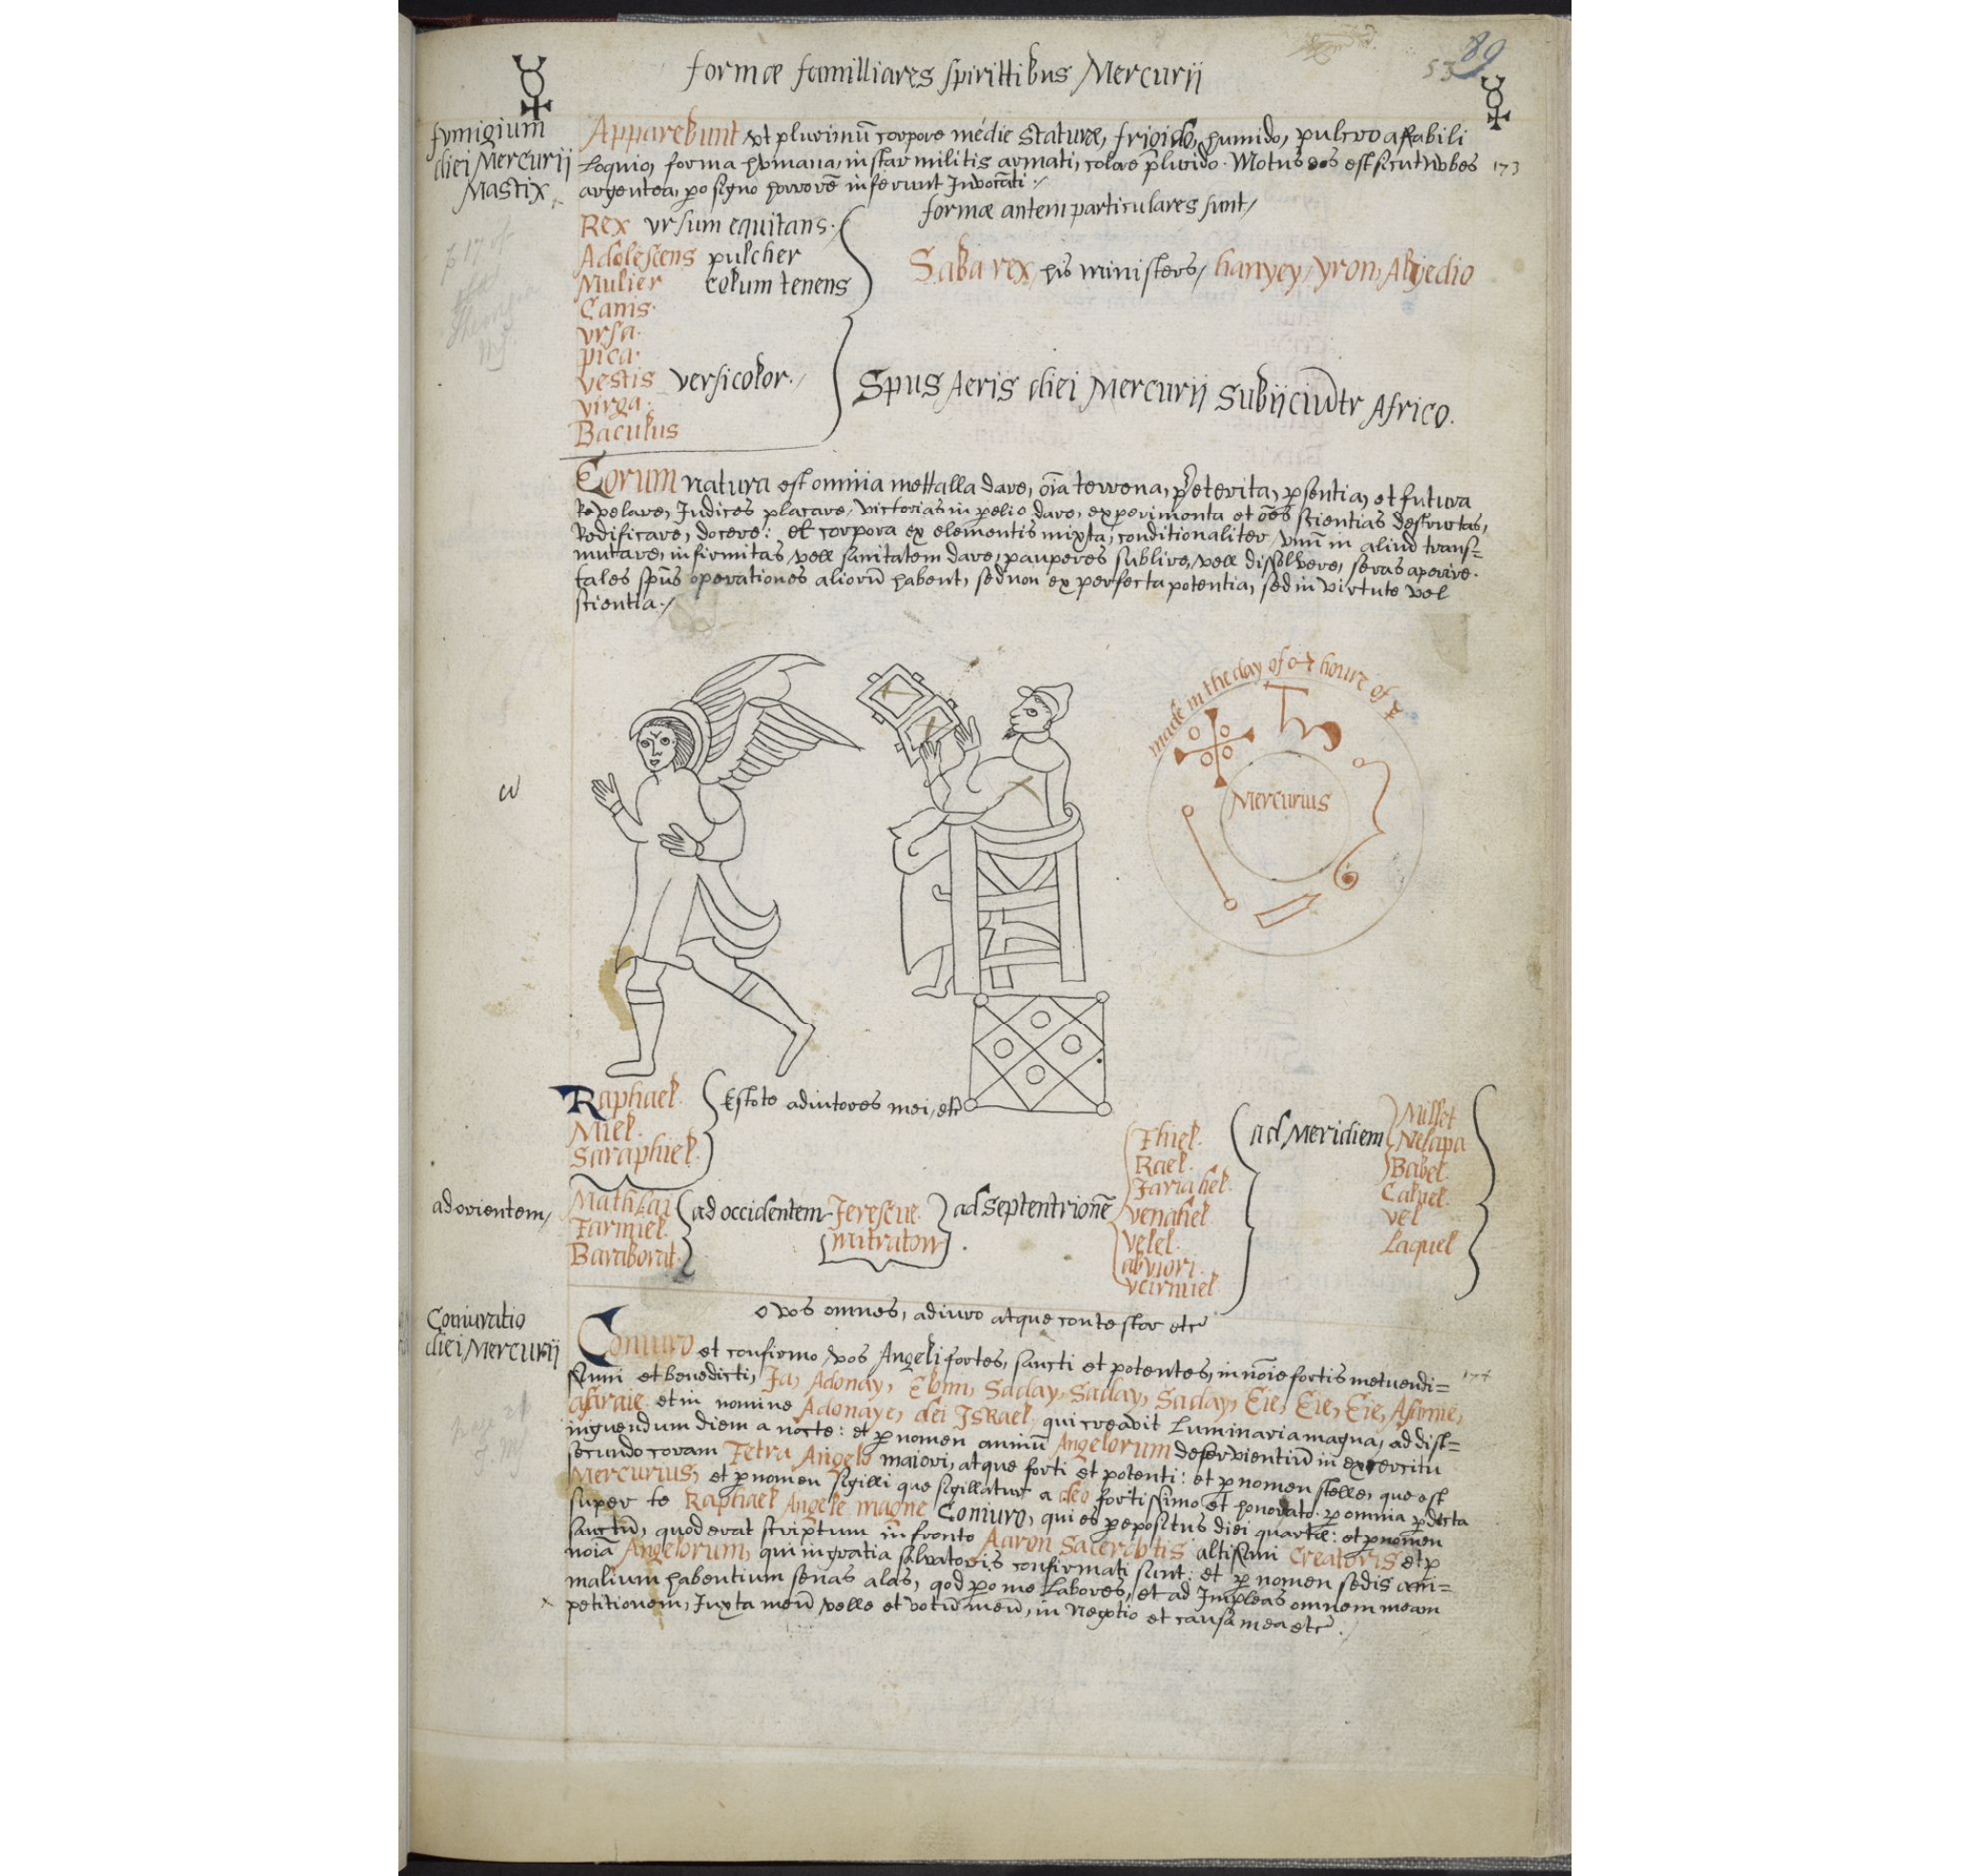 formæ familliares spirittibus Mercurij
53 89
fvmigium
diei Mercurij
Mastix
Apparebunt vt plurimū corpore médie staturæ, frigido, humido, pulcro affabili
Loquio, forma hvmana, instar militis armati, colore plucido. Motus eos est sicut nvbes
173
argentea, pro signo horrorē inferunt Invocāti
formæ autem particulares sunt
Rex vrsum equitans.
Adolescens pulcher
Mulier colum tenens
Canis.
vrsa.
pica.
vestis versicolor.
virga.
Baculus
Saba rex, his ministers, hanyey, yron, Alvedio
Spus Aeris diei Mercurij Subijciūtr Africo.
Eorum natura est omnia mettalla dare, oīa terrena, preterita, psentia, et futura
Revelare, Iudices placare, victorias in pelio dare, experimenta et oēs scientias destructas,
Redificare, docere: et corpora ex elementis mixta, conditionaliter, vnū in aliud trans=
mutare, infirmitas vell sanitatem dare, pauperes sublire, vell dissolvere, seras aperire.
tales spūs operationes aliorū habent, sed non ex perfecta potentia, sed in virtute vel
scientia.
made in the day of houre of ☿
Mercurius
Raphael.
Miel.
Saraphiel.
Estote adiutores mei, etc
ad orientem
Mathlai
Tarmiel.
Baraborat.
ad occidentem
Jerescue.
mitraton
ad Septentrionē
Thiel.
Rael.
Jariahel.
venahel.
velel.
abviori.
vcirmiel.
ad Meridiem
Millet
Nelapa
Babel.
Caluel.
vel
Laquel
o vos omnes, adiuro atque contestor etc
Coniuratio
diei Mercurij
Coniuro et confirmo vos Angeli fortes, sancti et potentes, in nōie fortis metuendi=
174
ssimi et benedicti, Ja, Adonay, Eloim, Saday, Saday, Saday, Eie, Eie, Eie, Asamie,
asaraie et in nomine Adonaye, dei Israel, qui creavit Luminaria magna, ad dist=
inguendum diem a nocte: et p nomen omniū Angelorum deservientiū in exercitu
secundo coram Tetra Angelo maiori, atque forti et potenti: et p nomen stelle, que est
Mercurius, et p nomen sigilli que sigillatur a deo fortissimo et honorato. p omnia pdicta
super te Raphael Angele magne Coniuro, qui es prepositus diei quartæ: et p nomen
sanctū, quod erat scriptum in fronte Aaron Sacerdotis altissimi Creatoris et p
noiā Angelorum, qui in gratia salvatoris confirmati sunt: et p nomen sedis ani=
malium habentium senas alas, qod pro me Labores, et ad Impleas omnem meam
petitionem, Iuxta meū velle et votū meū, in Negotio et causa mea etc.